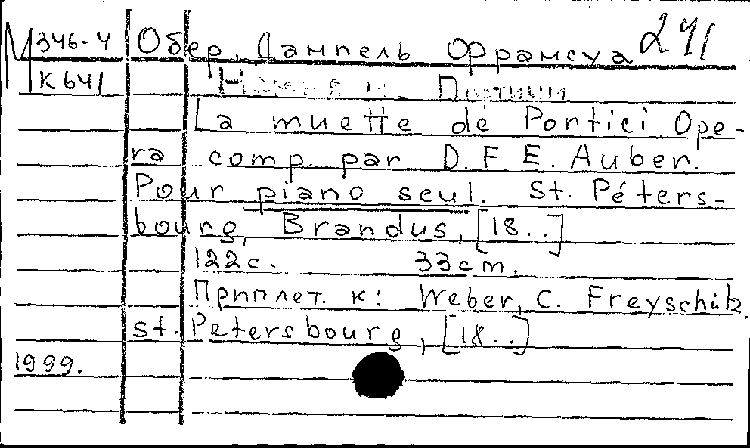 М 346-4 Обер, Даниель Франсуа 241
К 641 Немая из Портичи
La muette de Portici Ope-
ra comp. par D. F. E. Auber.
Pour piano seul. St. Péters-
bourg, Brandus, [18..]
122 с. 33 cm.
Приплет. к: Weber, C. Freyschütz.
St. Petersbourg, [18..]
1999.